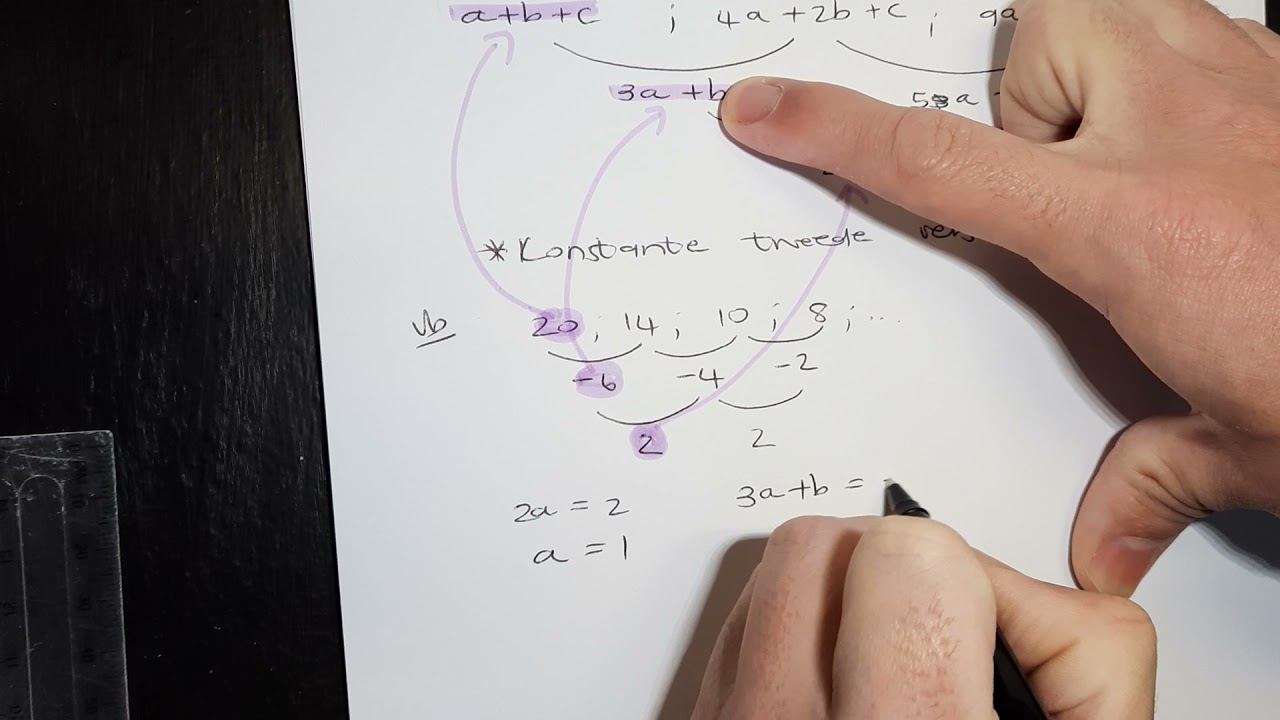 a+b+c ; 4a+2b+c ; 9a
3a+b 5a
*Konstante tweede
Vb 20 ; 14 ; 10 ; 8 ; ...
-6 -4 -2
2 2
2a = 2 3a+b = -
a = 1